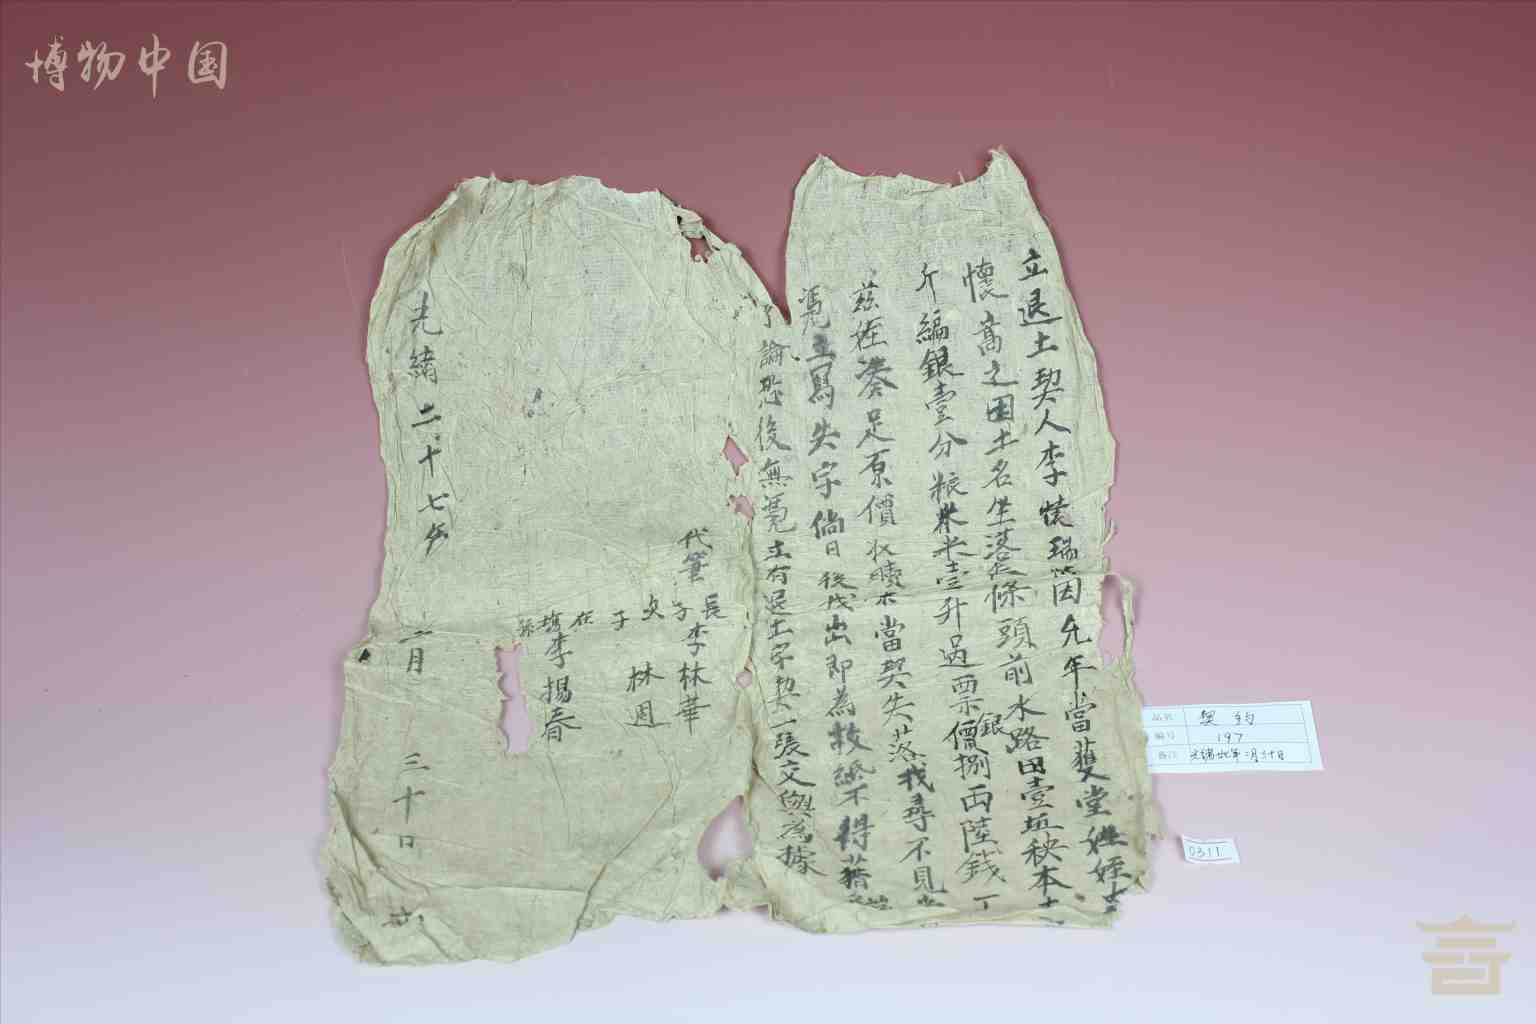 博物中国
立退土契人李懷瑞因允年當蔓堂姪姪
懷嵩之田土名坐落長條頭前水路田壹坵秧本
斤編銀壹分粮米壹升過票銀價捌両陸錢
茲姪湊足原價收贖 當契失落找尋不見
憑立寫失字倘日後找出即為故紙不得藉
論恐後無憑立有退土字契一張交與為據
代筆長子李林華
次子林周
在塲孫李揚春
光緒二十七年二月三十日立
品名 契约
编号 197
备注 光绪廿七年二月三十日
0311